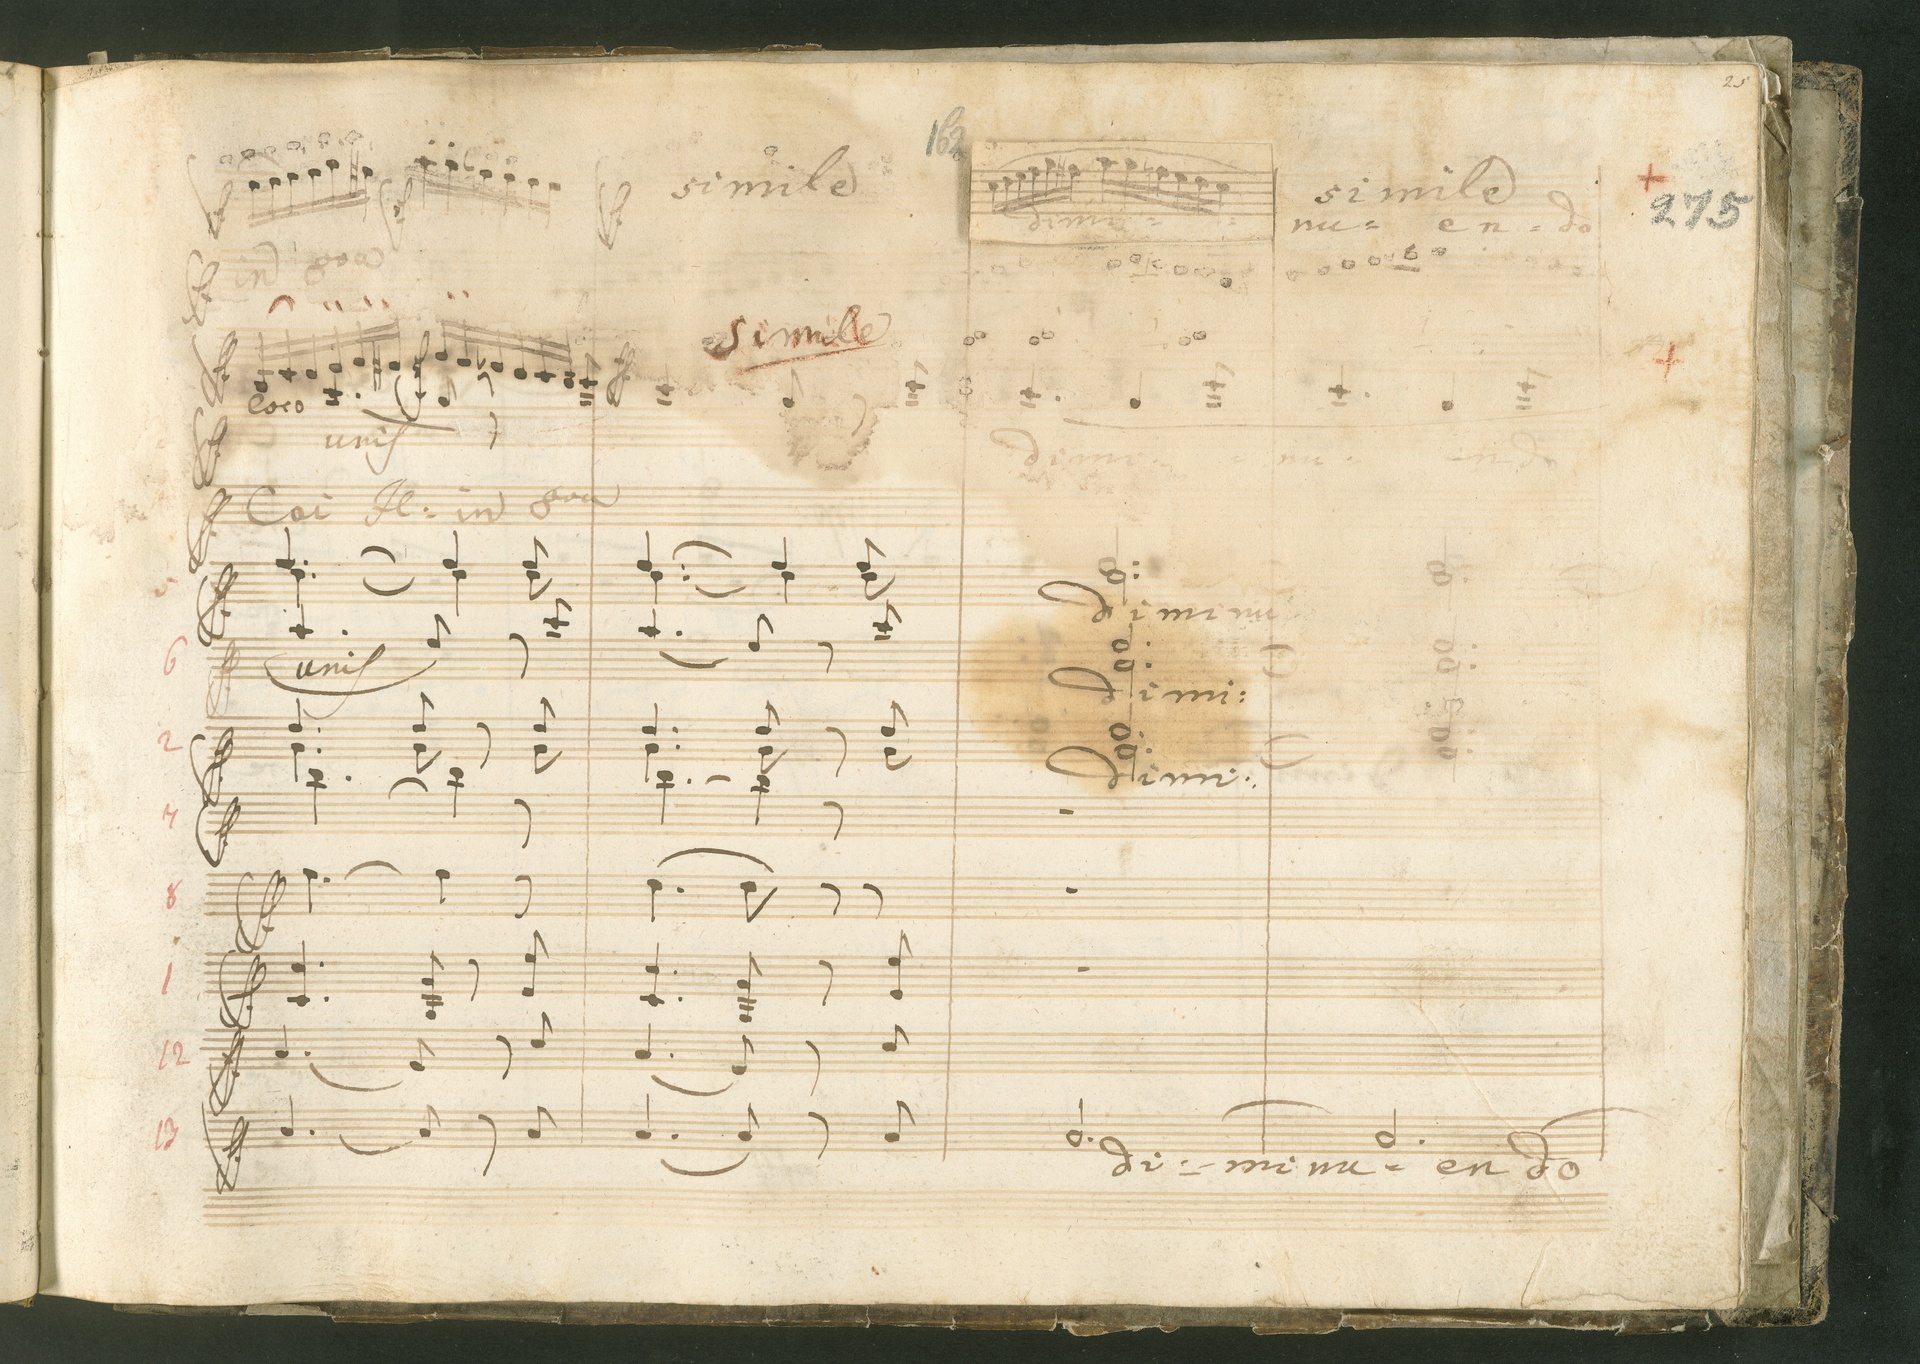 25
162
simile
simile
275
dimi=
nu= en=do
in 8va
simile
loco
unis
dimi nu en do
Coi Fl: in 8va
5
diminu
6
unis
dimi:
2
dimi:
7
8
1
12
13
di=minu=en do